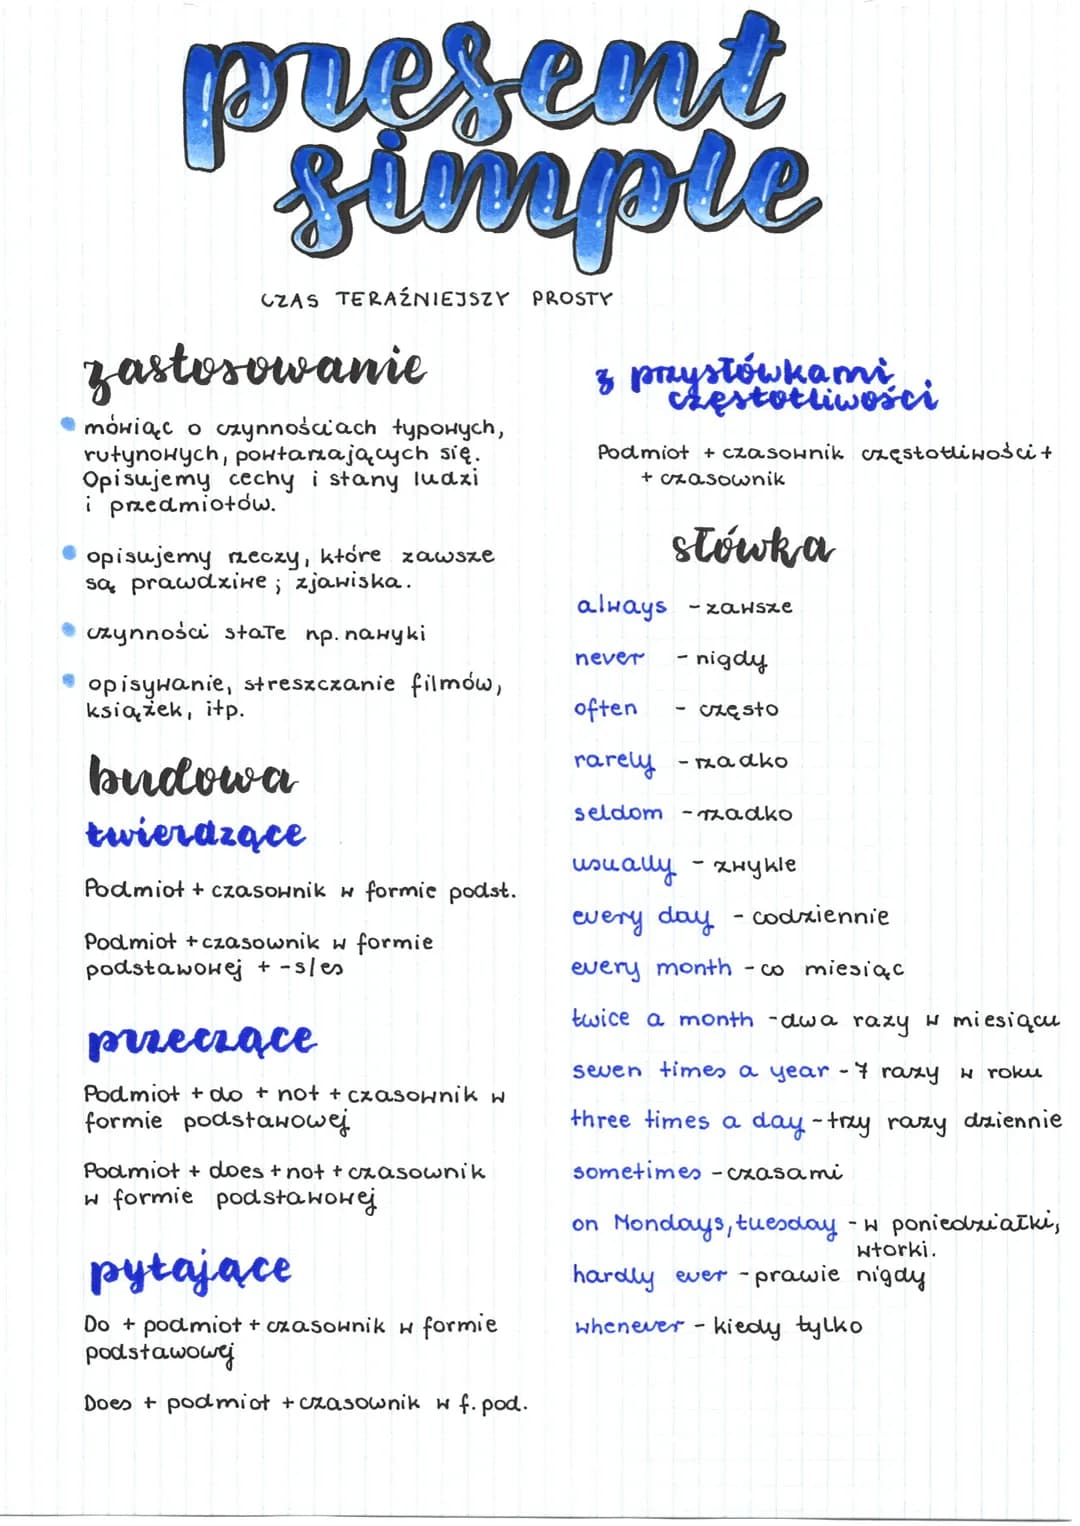 present
simple
CZAS TERAŹNIEJSZY PROSTY
zastosowanie
mówiąc o czynnościach typowych,
rutynowych, powtarzających się.
Opisujemy cechy i stany ludzi
i przedmiotów.
opisujemy rzeczy, które zawsze
są prawdziwe; zjawiska.
czynności stałe np. nawyki
opisywanie, streszczanie filmów,
książek, itp.
budowa
twierdzące
Podmiot + czasownik w formie podst.
Podmiot + czasownik w formie
podstawowej + -s/es
przeczące
Podmiot + do + not + czasownik w
formie podstawowej
Podmiot + does + not + czasownik
w formie podstawowej
pytające
Do + podmiot + czasownik w formie
podstawowej
Does + podmiot + czasownik w f. pod.
z przysłówkami
częstotliwości
Podmiot + czasownik częstotliwości +
+ czasownik
słówka
always - zawsze
never - nigdy
often - często
rarely - rzadko
seldom - rzadko
usually - zwykle
every day - codziennie
every month - co miesiąc
twice a month - dwa razy w miesiącu
seven times a year - 7 razy w roku
three times a day - trzy razy dziennie
sometimes - czasami
on Mondays, tuesday - w poniedziałki,
wtorki.
hardly ever - prawie nigdy
whenever - kiedy tylko